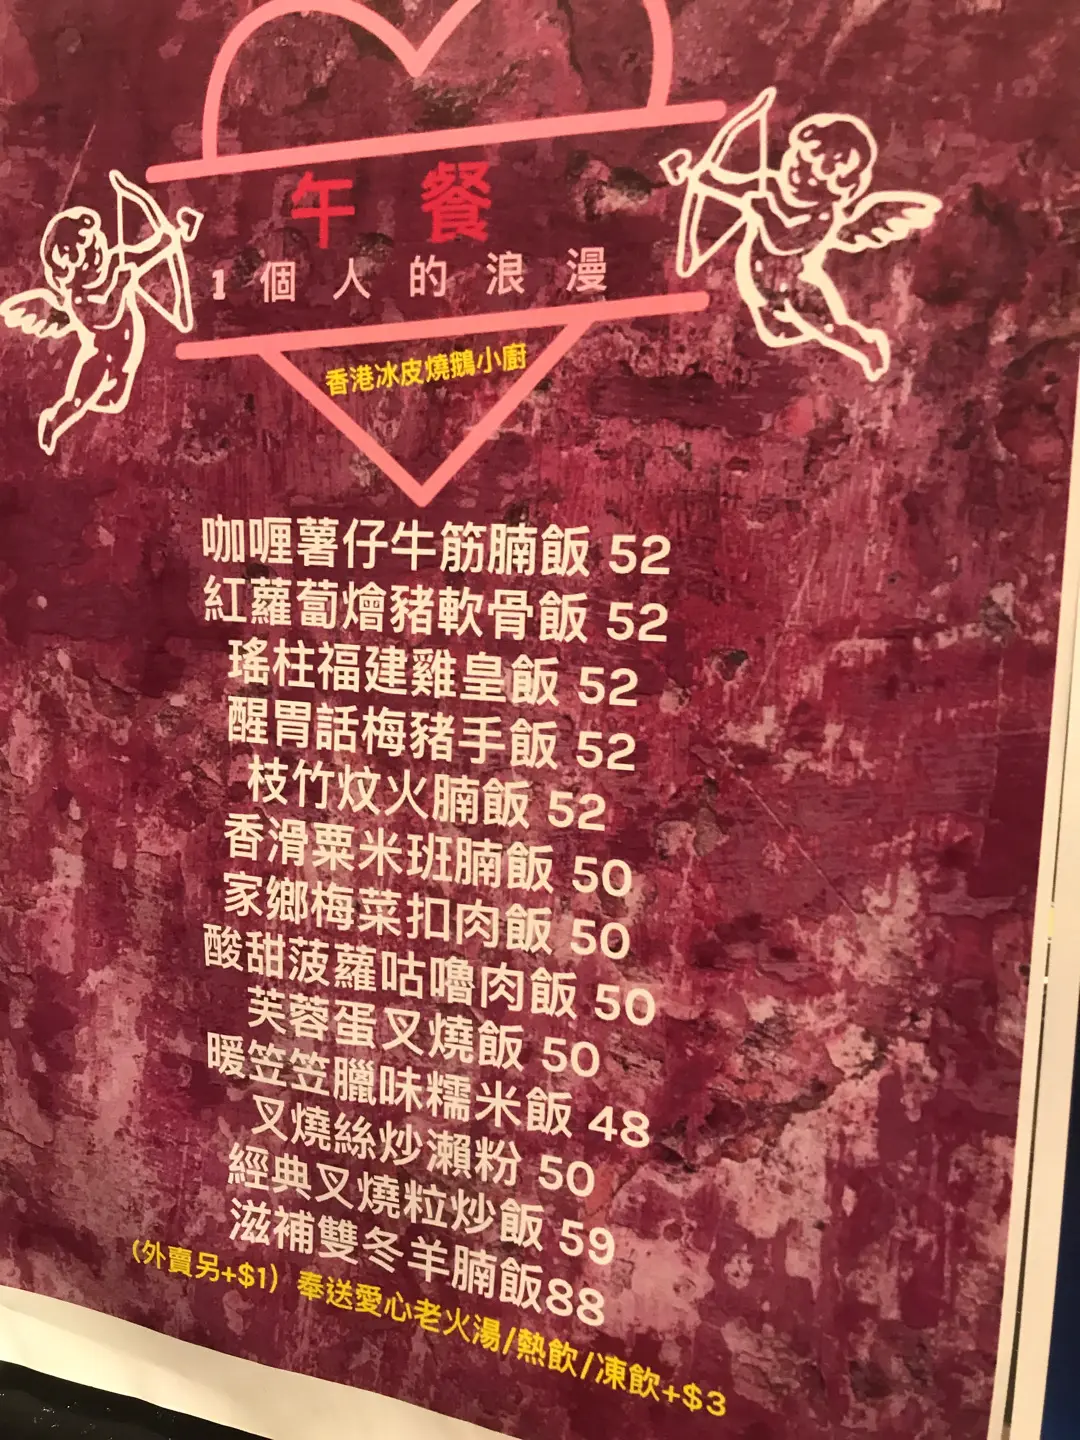 午餐
1個人的浪漫
香港冰皮燒鵝小廚
咖喱薯仔牛筋腩飯 52
紅蘿蔔燴豬軟骨飯 52
瑤柱福建雞皇飯 52
醒胃話梅豬手飯 52
枝竹炆火腩飯 52
香滑粟米班腩飯 50
家鄉梅菜扣肉飯 50
酸甜菠蘿咕嚕肉飯 50
芙蓉蛋叉燒飯 50
暖笠笠臘味糯米飯 48
叉燒絲炒瀨粉 50
經典叉燒粒炒飯 59
滋補雙冬羊腩飯88
(外賣另+$1) 奉送愛心老火湯/熱飲/凍飲+$3